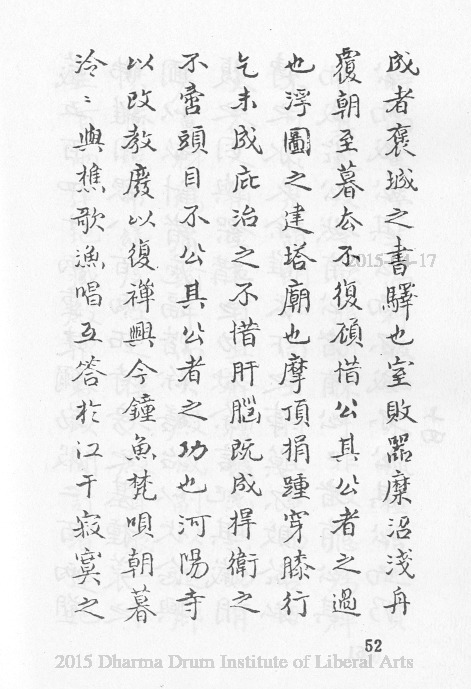 成者褒城之書驛也室敗器糜沼淺舟
覆朝至暮去不復顧惜公其公者之過
也浮圖之建塔廟也摩頂捐踵穿膝行
乞未成庇治之不惜肝腦既成捍衛之
不啻頭目不公其公者之功也河陽寺
以改教廢以復禪興今鐘魚梵唄朝暮
泠〻與樵歌漁唱互答於江干寂寞之
2015-11-17
52
2015 Dharma Drum Institute of Liberal Arts